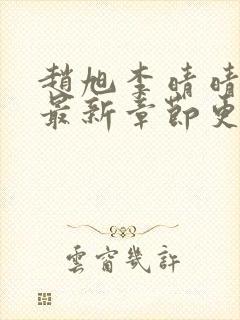 趙旭李晴晴
最新章節更
雲窗幾許